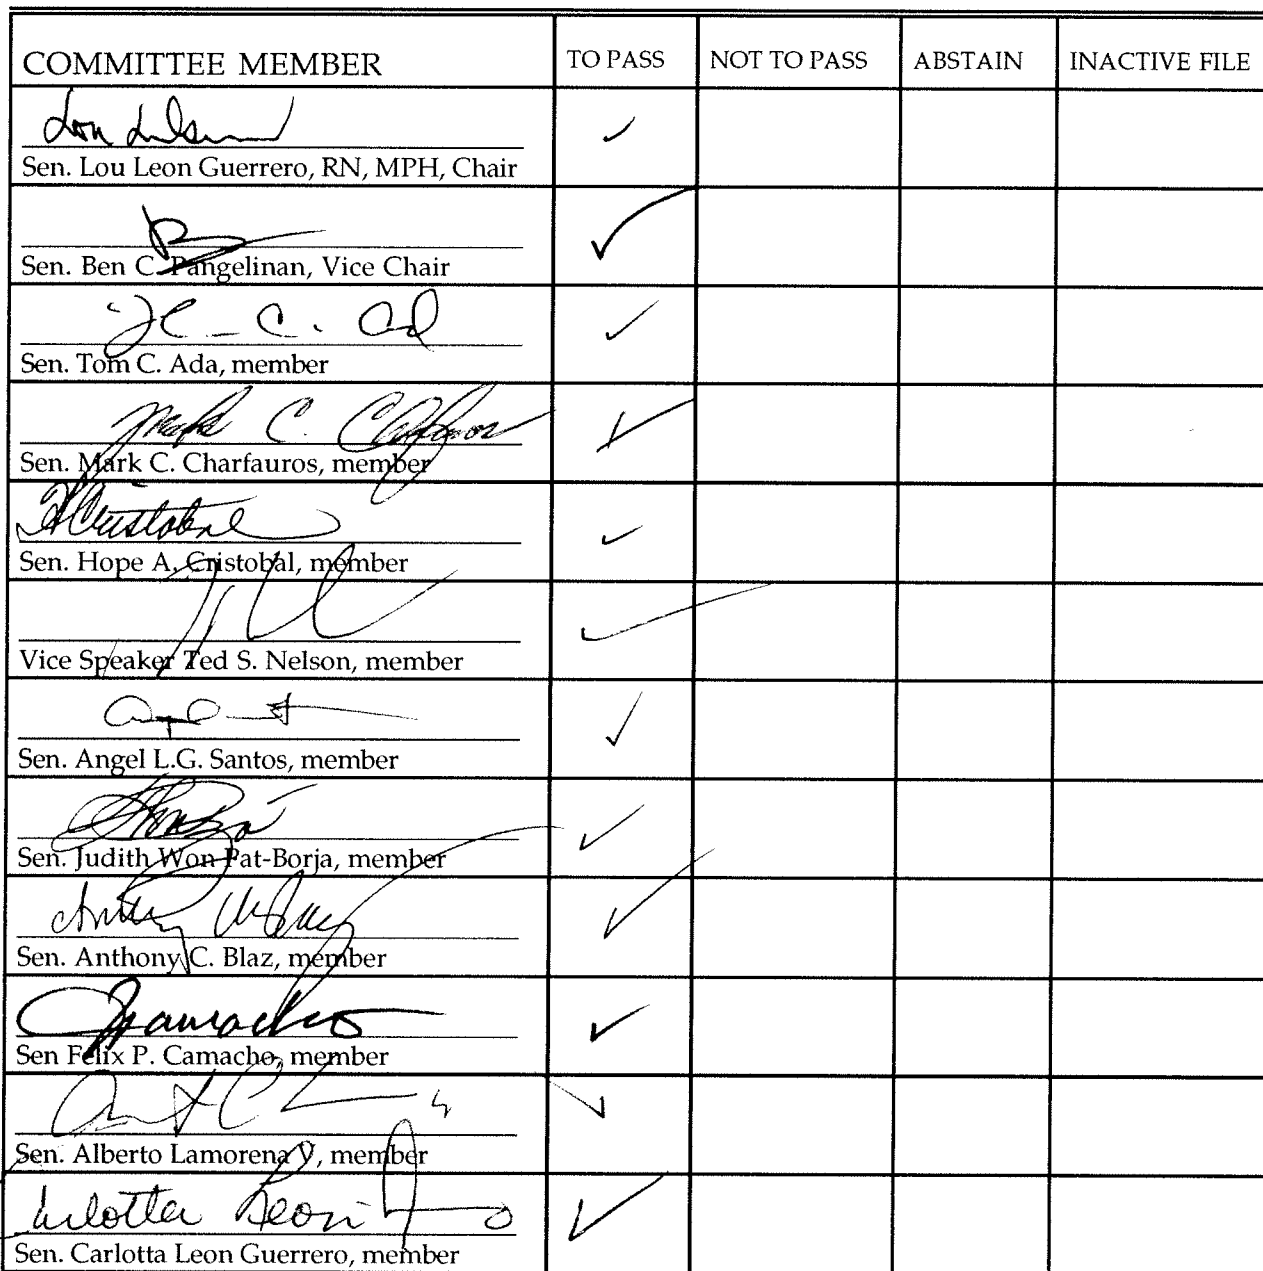 COMMITTEE MEMBER TO PASS NOT TO PASS ABSTAIN INACTIVE FILE
✓
Sen. Lou Leon Guerrero, RN, MPH, Chair
✓
Sen. Ben C. Pangelinan, Vice Chair
✓
Sen. Tom C. Ada, member
Mark C. Charfauros ✓
Sen. Mark C. Charfauros, member
HACristobal ✓
Sen. Hope A. Cristobal, member
✓
Vice Speaker Ted S. Nelson, member
✓
Sen. Angel L.G. Santos, member
✓
Sen. Judith Won Pat-Borja, member
✓
Sen. Anthony C. Blaz, member
Camacho ✓
Sen Felix P. Camacho, member
✓
Sen. Alberto Lamorena V, member
Carlotta Leon ✓
Sen. Carlotta Leon Guerrero, member